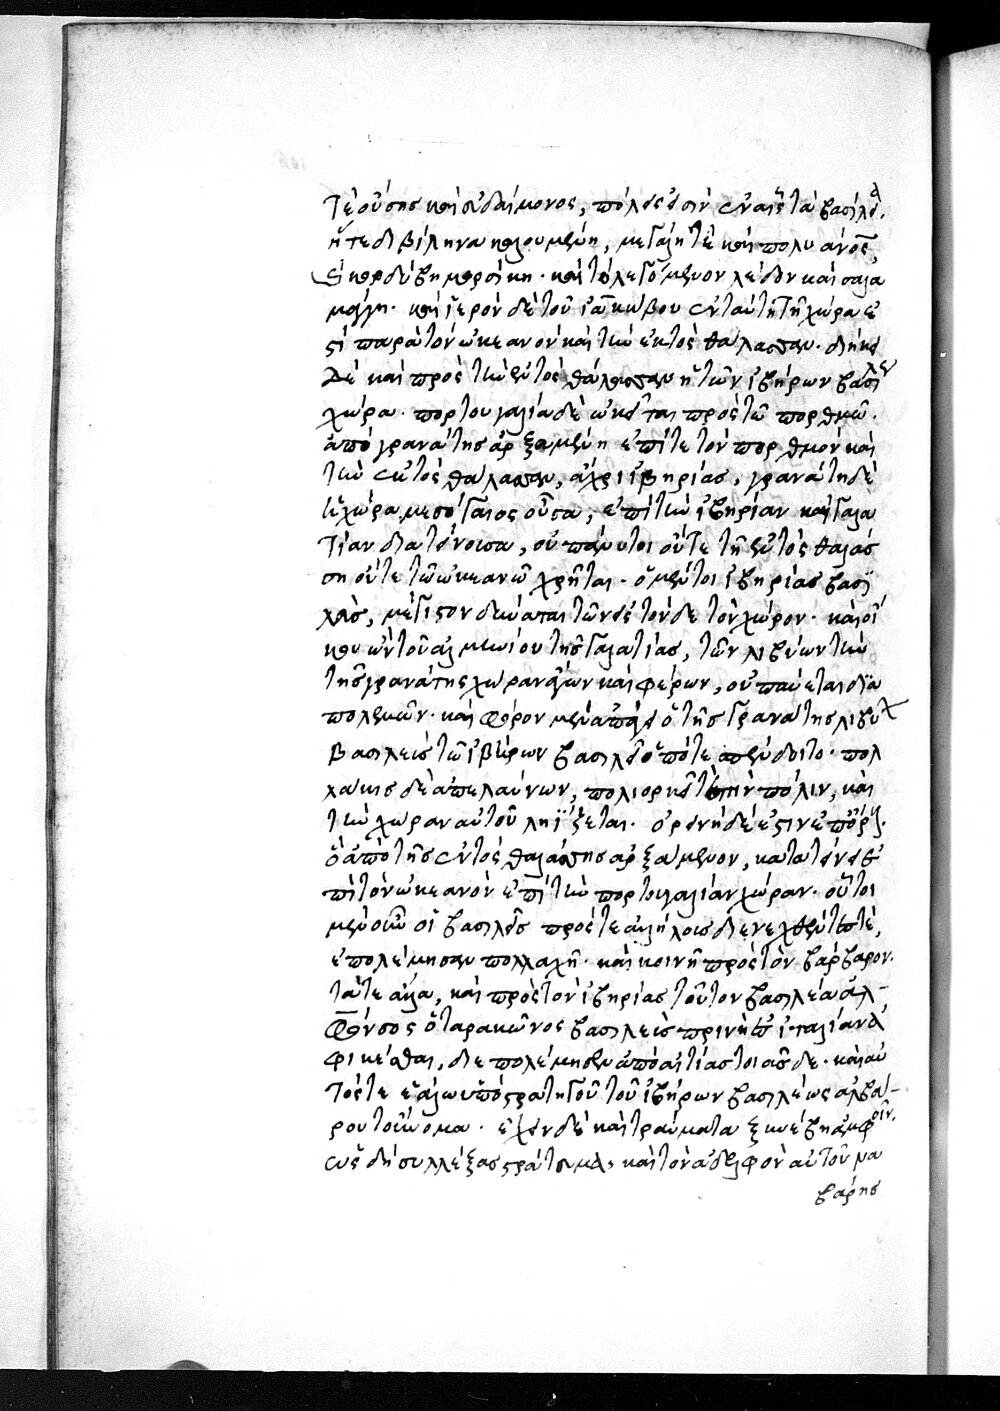 τε ούσης καὶ εὐδαίμονος, πόλεις εἰσὶν ἐν αἷς τὰ βασίλεια.
ἥ τε διβίληνα καλουμένη, μεγάλη τὲ καὶ πολυάνος,
καὶ κορδύβη μυρσίκη. καὶ τὸ λεγόμενον λέδην καὶ σαλα
μάγγη. καὶ ἱερὸν δὲ τοῦ ἰακώβου ἐν ταύτῃ τῇ χώρα ἐ
στὶ παρὰ τὸν ὠκεανὸν καὶ τὴν ἐκτὸς θάλασσαν. διήκει
δὲ καὶ πρὸς τὴν ἐντὸς θάλασσαν ἡ τῶν ἰβήρων βασιλέων
χώρα. πορτουγαλία δὲ ὤκισται πρὸς τῶ πορθμῶ.
ἀπὸ γρανάτης ἀρξαμένη ἐπί τε τὸν πορθμὸν καὶ
τὴν ἐκτὸς θάλασσαν, ἄχρι ἰβηρίας, γρανάτη δὲ
ἡ χώρα μεσόγαιος οὖσα, ἐπὶ τὴν ἰβηρίαν καὶ γαλα
τίαν διατείνουσα, οὐ πάνυ τοι οὔτε τῆ ἐντὸς θαλάσ
ση οὔτε τῶ ὠκεανῶ χρῆται. ὁ μέντοι ἰβηρίας βασι
λεὺς, μέγιστον δύναται τῶν ἐς τόνδε τὸν χῶρον. καὶ οἵ
κου ὢν τοῦ ἀλμενίου τῆς γαλατίας, τῶν λιβύων τὴν
τῆς γρανάτης χώραν ἄγων καὶ φέρων, οὐ παύεται δια
πολεμῶν. καὶ φόρον μὲν ἀπάγει ὁ τῆς γρανάτης λιβύων
βασιλεὺς τῶ ἰβήρων βασιλεῖ ὁπότε σπένδοιτο. πολ
λάκις δὲ ἀπελαύνων, πολιορκεῖ τὴν πόλιν, καὶ
τὴν χώραν αὐτοῦ ληΐζεται. ὀρεινὴ δέ ἐστιν
ὃ ἀπὸ τῆς ἐντὸς θαλάσσης ἀρξάμενον, κατατείνει ἐ
πὶ τὸν ὠκεανὸν ἐπὶ τὴν πορτουγαλίαν χώραν. οὗτοι
μὲν οὖν οἱ βασιλεῖς πρός τε ἀλλήλοις διενεχθέντες τε,
ἐπολέμησαν πολλαχῆ. καὶ κοινῆ πρὸς τὸν βάρβαρον.
τά τε ἄλλα, καὶ πρὸς τὸν ἰβηρίας τοῦτον βασιλέα ἀλ-
φόνσος ὁ ταρακῶνος βασιλεὺς πρὶν ἢ ἐς ἰταλίαν ἀ
φικέσθαι, διεπολέμησεν ἀπὸ αἰτίας τοιᾶσδε. καὶ αὐ
τός τε ἑάλω ὑπὸ στρατηγοῦ τοῦ ἰβήρων βασιλέως ἀλβά-
ρου τοὔνομα. ἔχον δὲ καὶ τραύματα ξυνέβη ἀμφοῖν.
ὡς δὴ συλλέξας στράτευμα, καὶ τὸν ἀδελφὸν αὐτοῦ μα
βάρης